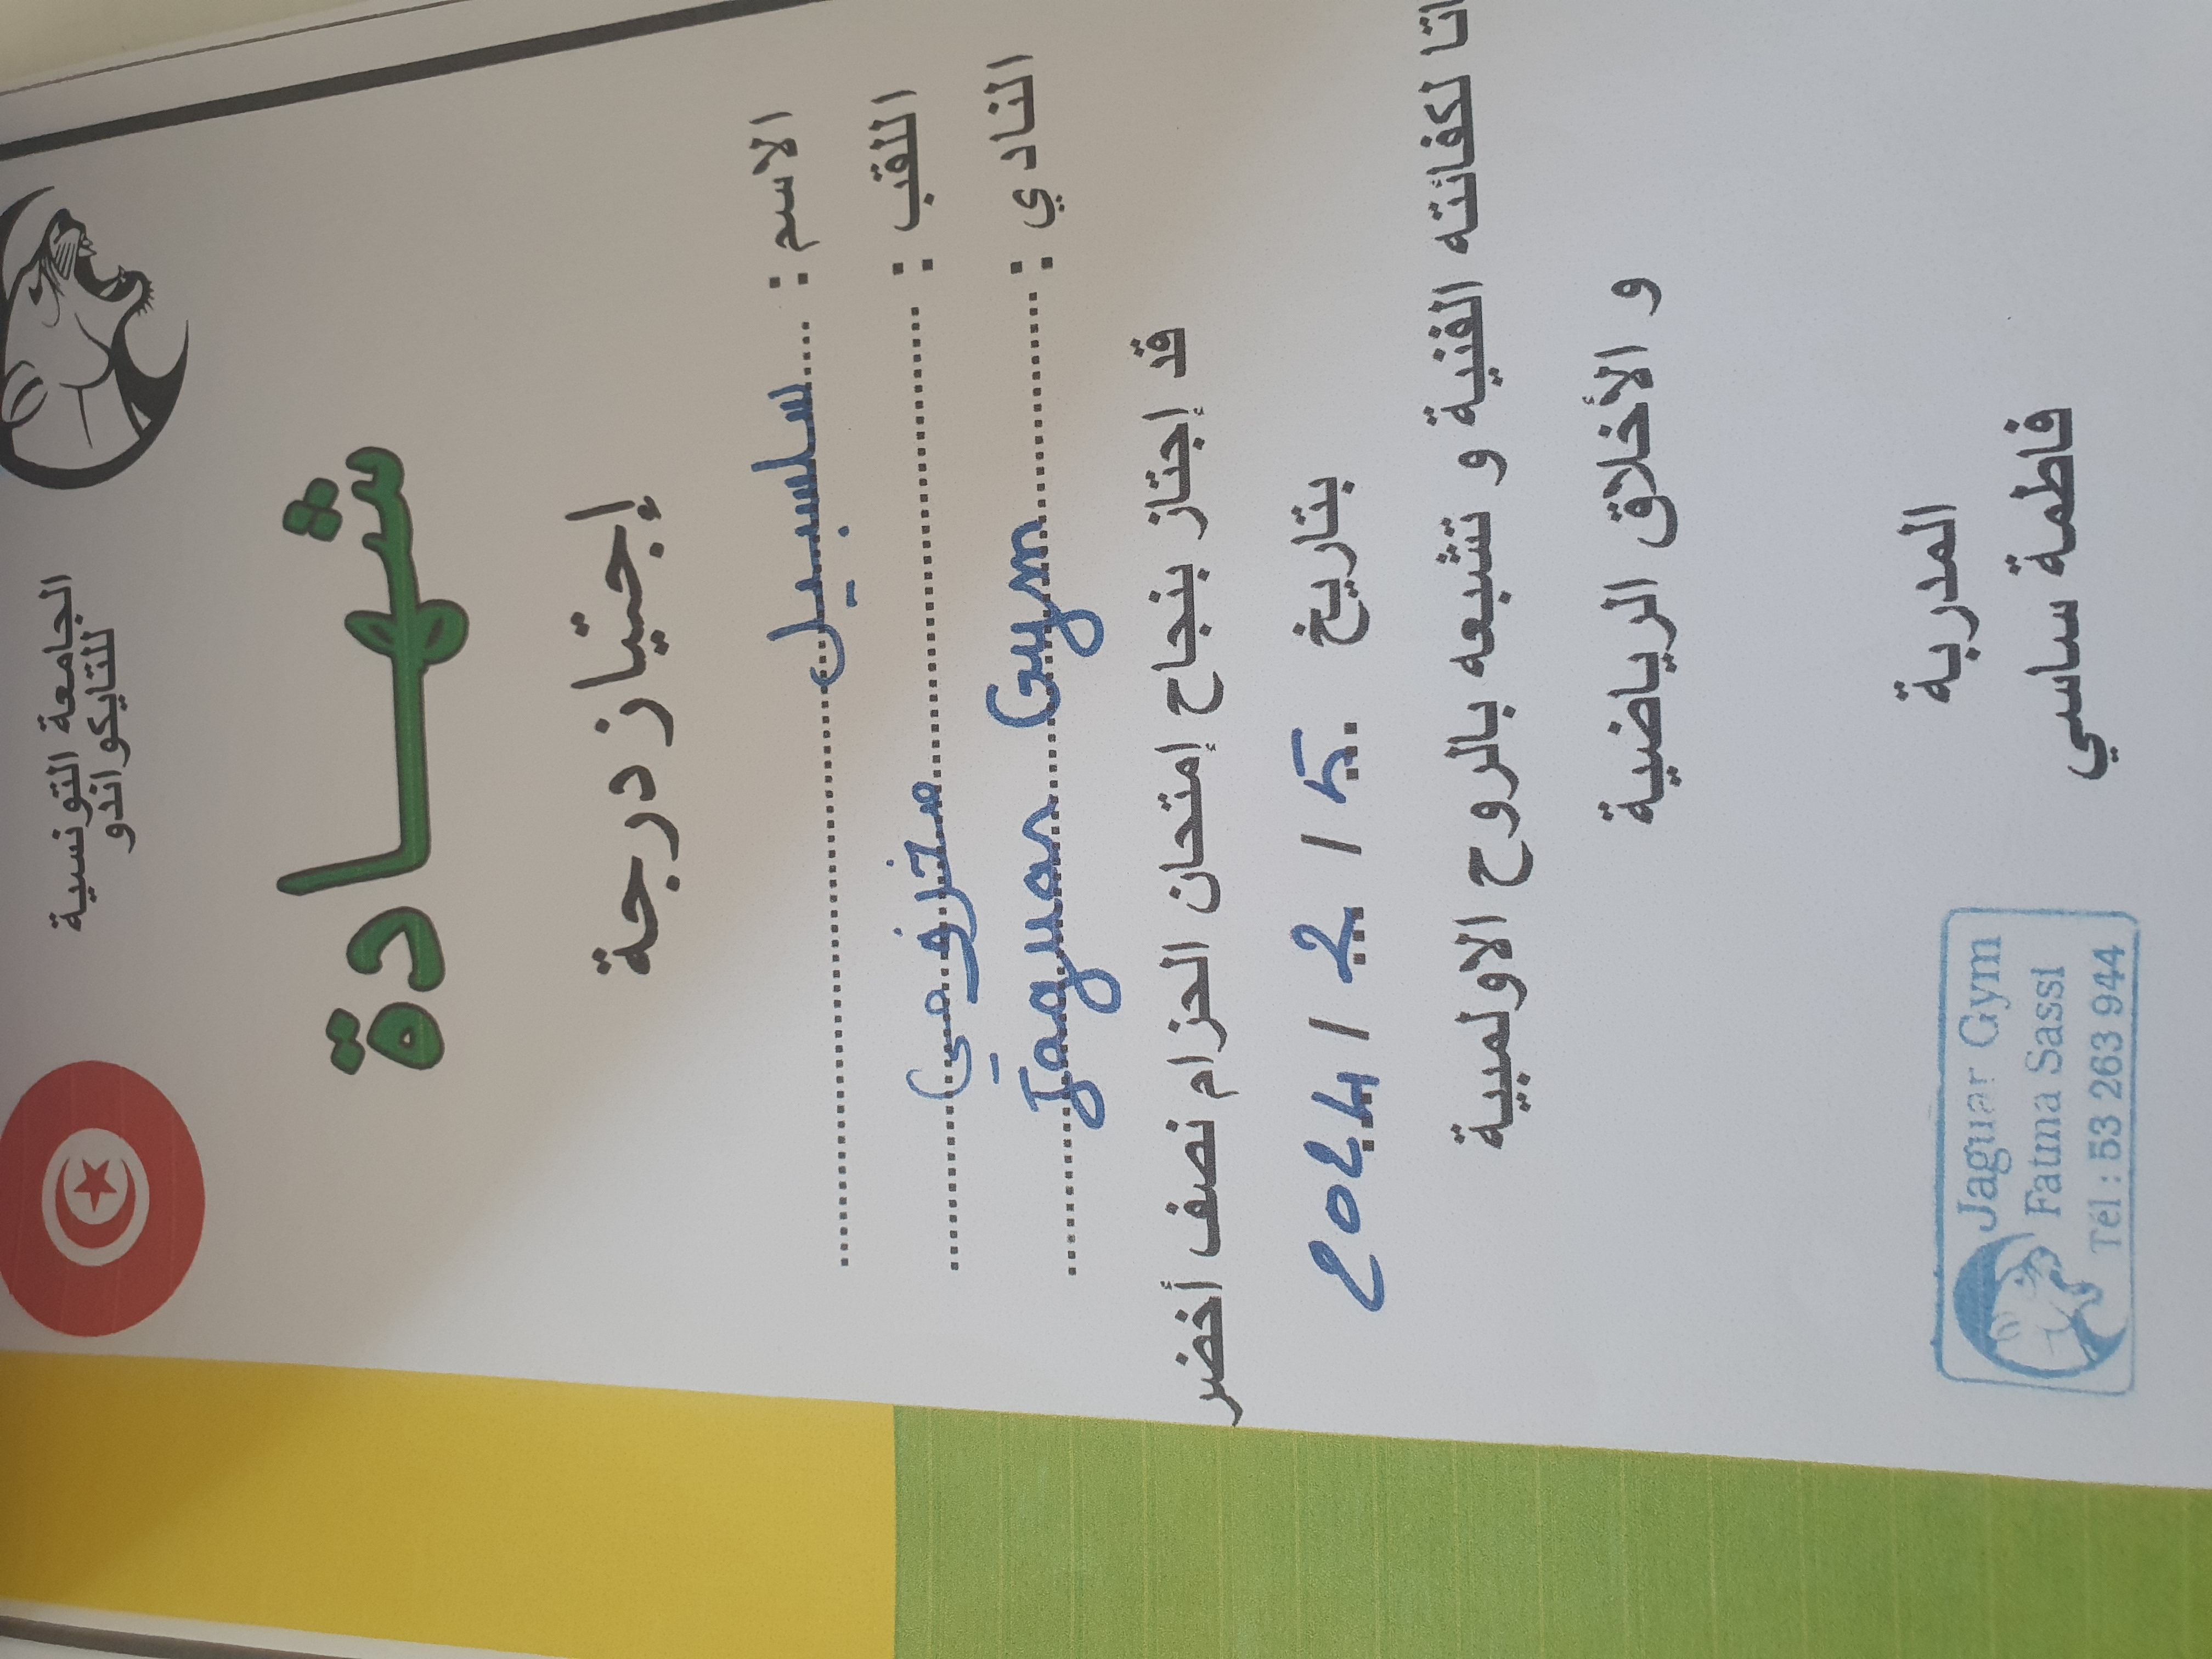 الجامعة التونسية
للتايكواندو
شهادة
إجتياز درجة
الاسم : سلسبيل
اللقب :
النادي : Jaguar Gym
قد إجتاز بنجاح إمتحان الحزام نصف أخضر
بتاريخ 2024/2/5
لكفائته الفنية و تشبعه بالروح الاولمبية
و الأخلاق الرياضية
المدربة
فاطمة ساسي
Jaguar Gym
Fatma Sassi
Tél : 53 263 944